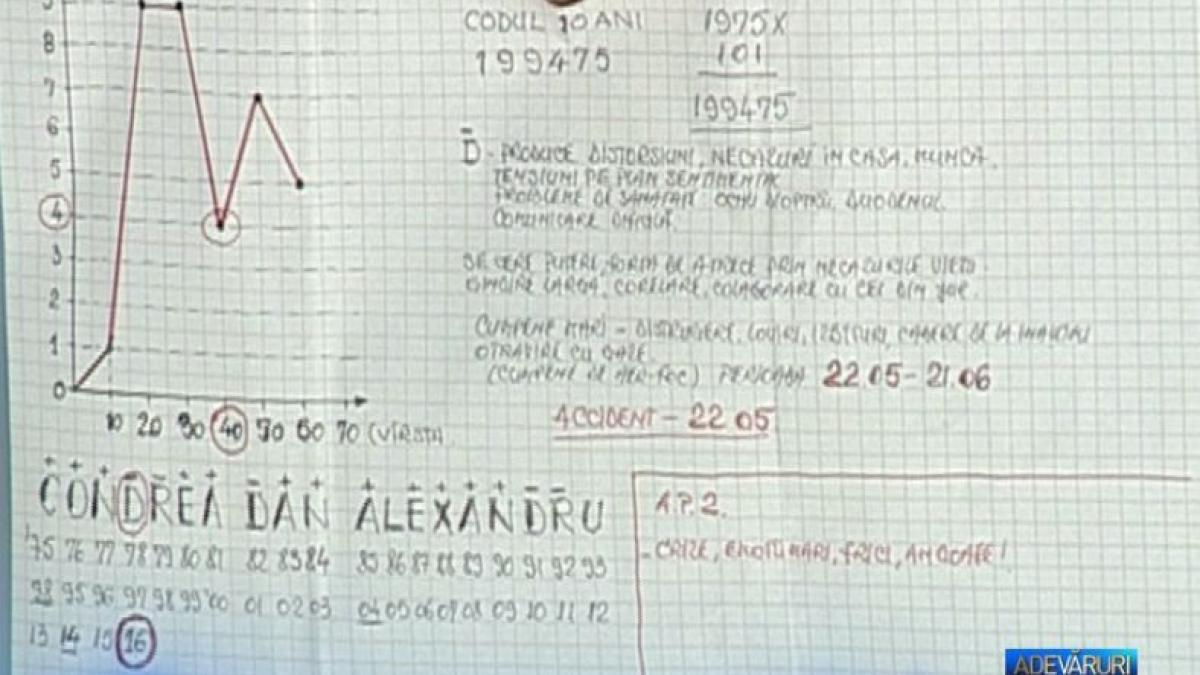 CODUL 10 ANI 1975X
199475 101
199475
8
7
6
5
4
3
2
1
0
10 20 30 40 50 60 70 (VÎRSTA)
D - PRODUCE DISTORSIUNI, NECAZURI IN CASA, MUNCA.
TENSIUNI PE PLAN SENTIMENTAL
PROBLEME DE SANATATE DUODENUL
COMUNICARE DIFICILA.
SE CERE PUTERE, DE A TRECE PRIN NECAZURILE VIETII.
GINDIRE LARGA, CORELARE, COLABORARE CU CEI DIN JUR.
CUMPENE MARI - DISTRUGERE, LOVIRI, IZBITURI, CADERE DE LA INALTIMI
OTRAVIRE CU GAZE.
(CUMPENE DE AER-FOC) PERIOADA 22.05 - 21.06
ACCIDENT - 22 05
CONDREA DAN ALEXANDRU
75 76 77 78 79 80 81 82 83 84 85 86 87 88 89 90 91 92 93
95 96 97 98 99 00 01 02 03 04 05 06 07 08 09 10 11 12
13 14 15 16
A.P.2.
- CRIZE, EMOTII MARI, FRICI, ANGOASE!
ADEVĂRURI